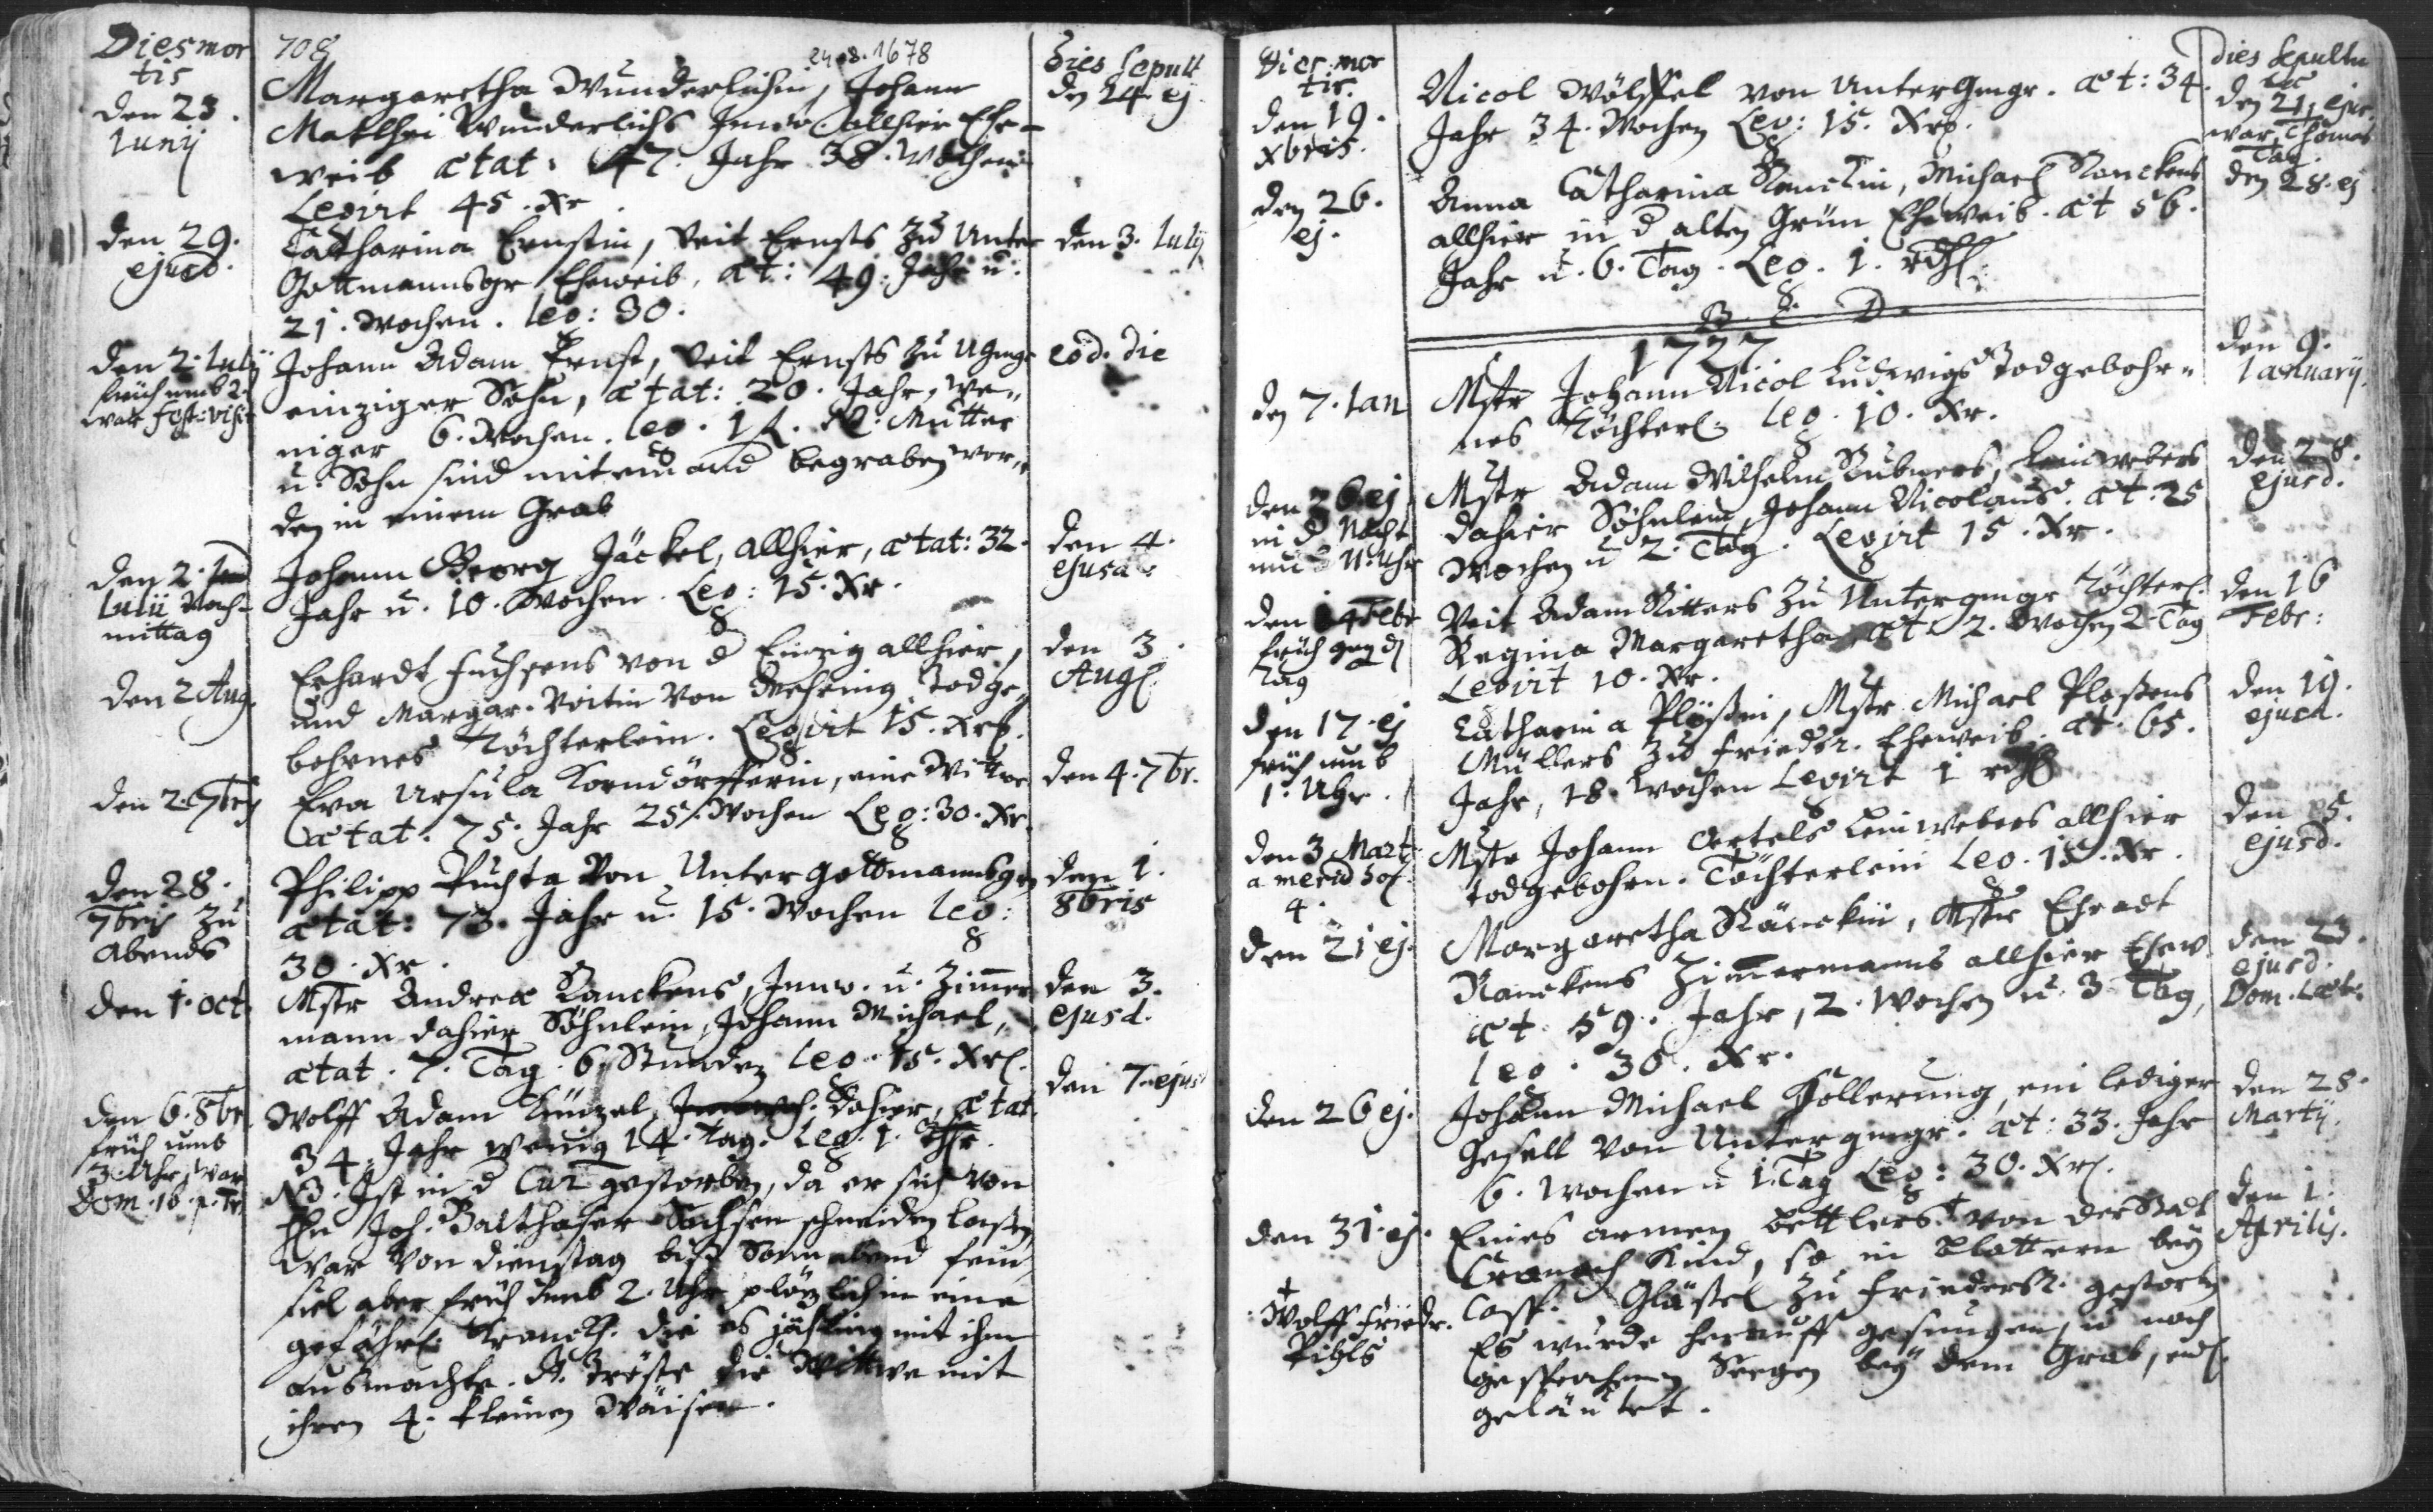 Dies mor
tis
708
24.8.1678
Dies Sepult
den 23.
Iunij
Margaretha Wunderlichin, Johann
Matthei Wunderlichs Innw. allhier Ehe-
weib ætat: 47. Jahr 38. Wochen
Legirt 45. Xr
den 24. ej.
den 29.
ejusd.
Catharina Ernstin, Veit Ernsts zu Unter
Gottmannsgr Eheweib, æt: 49. Jahr u.
21. Wochen. leg: 30.
den 3. Iulij
den 2. Iulij
früh umb 2.
war fest: visit
Johann Adam Ernst, Veit Ernsts zu UGmgr
einziger Sohn, ætat: 20. Jahr, we-
niger 6. Wochen. leg. 1 fl. Mutter
u. Sohn sind mit einand begraben wor-
den in einem Grab
eod. die
den 2.
Iulii Nach-
mittag
Johann Georg Jäckel, allhier, ætat: 32.
Jahr u. 10. Wochen. Leg: 15. Xr.
den 4.
ejusd.
den 2 Aug.
Erhardt Fuchsens von d Einzig allhier,
und Margar. Voitin von Mehring todge-
bohrnes Töchterlein. Legirt 15. Xr.
den 3.
Aug.
den 2. 7br
Eva Ursula Korndörfferin, eine Wittwe
ætat: 75. Jahr 25. Wochen Leg: 30. Xr.
den 4. 7br.
den 28.
7bris zu
Abends
Philipp Puchta von Untergottmannsgr
ætat: 73. Jahr u. 15. Wochen leg:
30. Xr.
den 1.
8bris
den 1. Oct.
Mstr Andreæ Ranckens, Innw. u. Zimmer
mann dahier Söhnlein, Johann Michael,
ætat. 7. Tag 6. Stunden leg. 15. Xr.
den 3.
ejusd.
den 6. 8br.
früh umb
3. Uhr, war
Dom. 16. p. Tr.
Wolff Adam Künzel, dahier, ætat.
34. Jahr wenig 14. Tag. Leg. 1. Thlr.
NB. Ist in d Cur gestorben, da er sich von
Hn Joh. Balthaser Sachsen schneiden lassen
war von Dienstag biß Sonnabend fein,
fiel aber früh umb 2. Uhr plözlich in eine
gefährl. Kranckh. die es jähling mit ihm
ausmachte. G. tröste die Wittwe mit
ihren 4. kleinen Wäisen.
den 7. ejusd
Dies mor
tis.
Dies Sepultu
ræ
den 19.
Xbris.
Nicol Wölffel von UnterGmgr. æt: 34.
Jahr 34. Wochen Leg: 15. Xr.
den 21. ejus.
war Thomas
Tag.
den 26.
ej.
Anna Catharina Ranckin, Michael Ranckens
allhier in d alten Grün Eheweib. æt 56.
Jahr u. 6. Tag. Leg. 1. rthl.
den 28. ej
1727.
den 7. Ian
Mstr Johann Nicol Ludwigs todgebohr-
nes Töchterl: leg. 10. Xr.
den 9.
Ianuarij.
den 26 ej
in d Nacht
umb 11. Uhr
Mstr Adam Wilhelm Rubners, Leinwebers
dahier Söhnlein, Johann Nicolaus. æt: 25
Wochen u 2. Tag. Legirt 15. Xr.
den 28.
ejusd.
den 14 Febr
früh geg d
Tag
Veit Adam Ritters zu Untergmgr Töchterl.
Regina Margaretha, æt. 2. Wochen 2. Tag
Legirt 10. Xr.
den 16
Febr:
den 17. ej
früh umb
1. Uhr.
Catharina Plößin, Mstr. Michael Plößens
Müllers zu Friedr. Eheweib. æt. 65.
Jahr, 18. Wochen Legirt 1 rthl
den 19.
ejusd.
den 3 Mart.
a merid hor
4.
Mstr Johann Oertels Leinwebers allhier
todgebohrn. Töchterlein Leg. 15. Xr.
den 5.
ejusd.
den 21 ej.
Margaretha Ränckin, Mstr Ehradt
Ranckens Zimmermanns allhier Ehew.
æt. 59. Jahr, 2. Wochen u. 3 Tag,
leg. 30. Xr.
den 23.
ejusd.
Dom. Læt.
den 26 ej.
Johann Michael Hollerung, ein lediger
Gesell von Untergmgr. æt: 33. Jahr
6. Wochen u 1. Tag Leg: 30. Xr.
den 28.
Martij.
den 31. ej.
Eines armen Bettlers + von der Stadt
Cronach Kind, so in Blattern bey
Casp. Gläßel zu Friedersr. gestorben
Es wurde herauff gesungen, u nach
gesprochenen Seegen bey dem Grab,
geläutet.
den 1.
Aprilis.
+
Wolff Friedr.
Pihls